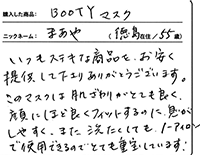 購入した商品: BOOTY マスク
ニックネーム: まあや (徳島在住/55歳)
いつもステキな商品を、お安く
提供して下さりありがとうございます。
このマスクは肌ざわりがとても良く、
顔にほど良くフィットするのに、息が
しやすく、また洗たくしても、ノーアイロン
で使用できるのでとても重宝しています!